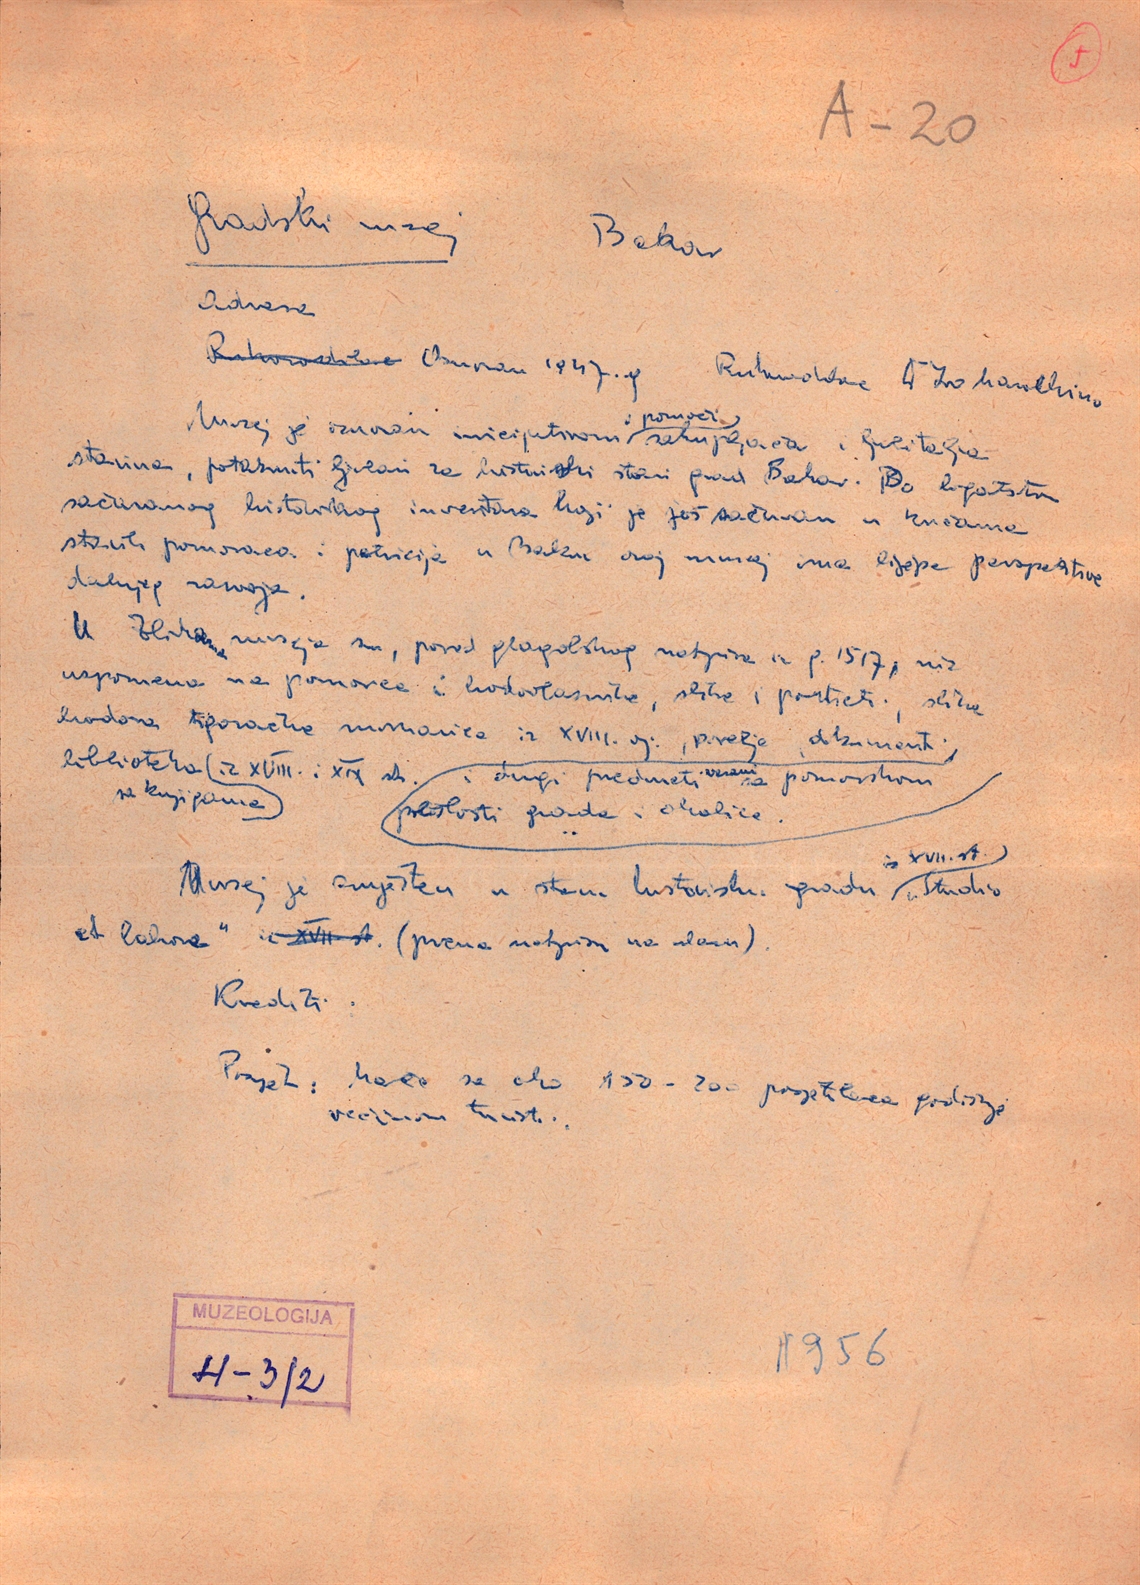 A-20
Gradski muzej Bakar
Adresa
Rukovodilac Osnovan 1947. g Rukovodilac
Muzej je osnovan inicijativom i pomoći sakupljača i ljubitelja
starina, potaknuti ljubavi za historiski stari grad Bakar. Po bogatstvu
sačuvanog historiskog inventara koji je još sačuvan u kućama
starih pomoraca i patricija u Bakru ovaj muzej ima lijepe perspektive
daljnjeg razvoja.
U zbirkama muzeja su, pored glagolskog natpisa iz g. 1517, niz
uspomena na pomorce i brodovlasnike, slike i portreti, slike
brodova, iz XVIII. st., dokumenti,
biblioteka (sa knjigama iz XVIII. i XIX st. i drugi predmeti vezani sa pomorskom
prošlosti grada i okolice.
Muzej je smješten u starom historiskom gradu iz XVII. st. „Studio
et labore" iz XVII st. (prema natpisu na ulazu).
Krediti:
Posjet: kreće se oko 150-200 posjetilaca godišnje
većinom turisti.
MUZEOLOGIJA
H-3/2
1956